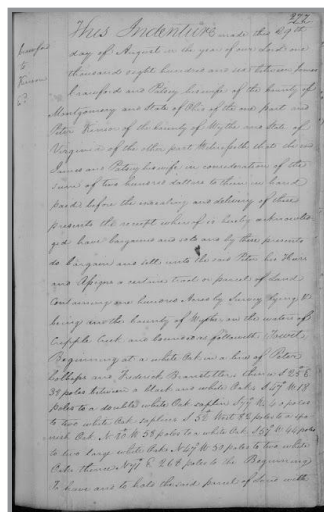 277
This Indenture made this 29th
day of August in the year of our Lord one
thousand eight hundred and six between James
Crawford and Patsey his wife of the County of
Montgomery and State of Ohio of the one part and
Peter of the County of Wythe and State of
Virginia of the other part Witnesseth that the said
James and Patsey his wife in consideration of the
sum of two hundred dollars to them in hand
paid before the ensealing and delivery of these
presents the receipt whereof is hereby acknowled
ged have bargained and sold and by these presents
do bargain and sell unto the said Peter his Heirs
and Assigns a certain tract or parcel of Land
Containing one hundred Acres by Survey lying &
being in the County of Wythe on the waters of
Cripple Creek and bounded as followeth Towit
Beginning at a white Oak in a line of Peter
and Frederick thence S E
38 poles between a black and white Oaks S 47 W 18
poles to a double white Oak sapling 40 poles
to two white Oak saplins S West 82 poles to a
Oak N W 58 poles to a white Oak S 67 W 44 poles
to two large white Oaks N 47 W 30 poles to two white
Oaks thence N E 268 poles to the Beginning
To have and to hold the said parcel of Land with